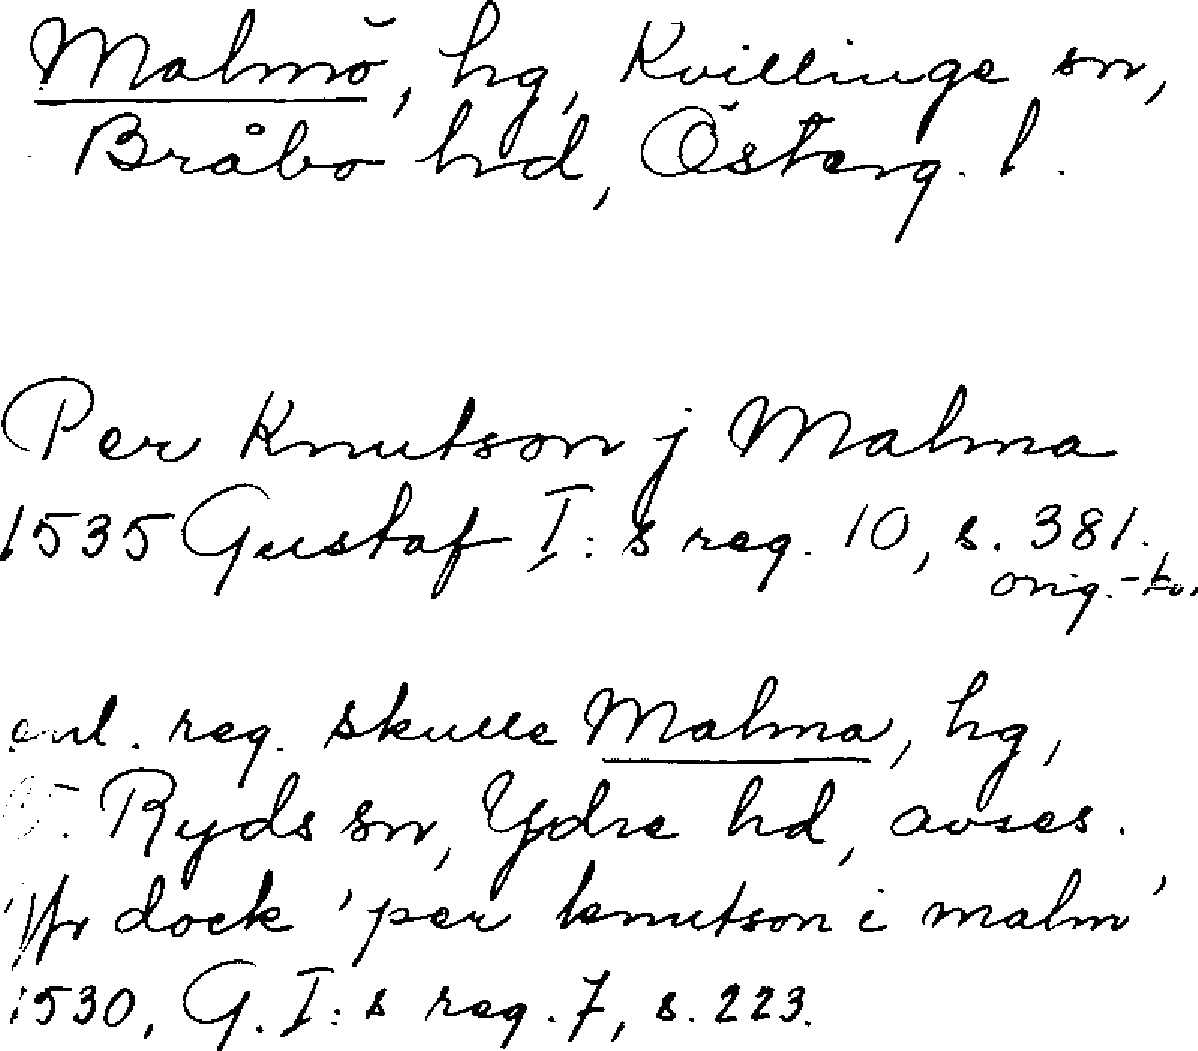 Malmö, hg, Kvillinge sn,
Bråbo hd, Österg. l.
Per Knutson j Malma
1535 Gustaf I:s reg. 10, s. 381.
orig.-ko.
enl. reg. skulle Malma, hg,
Ö. Ryds sn, Ydre hd, avses.
Jfr dock 'per knutson i malm'
1530, G. I:s reg. 7, s. 223.